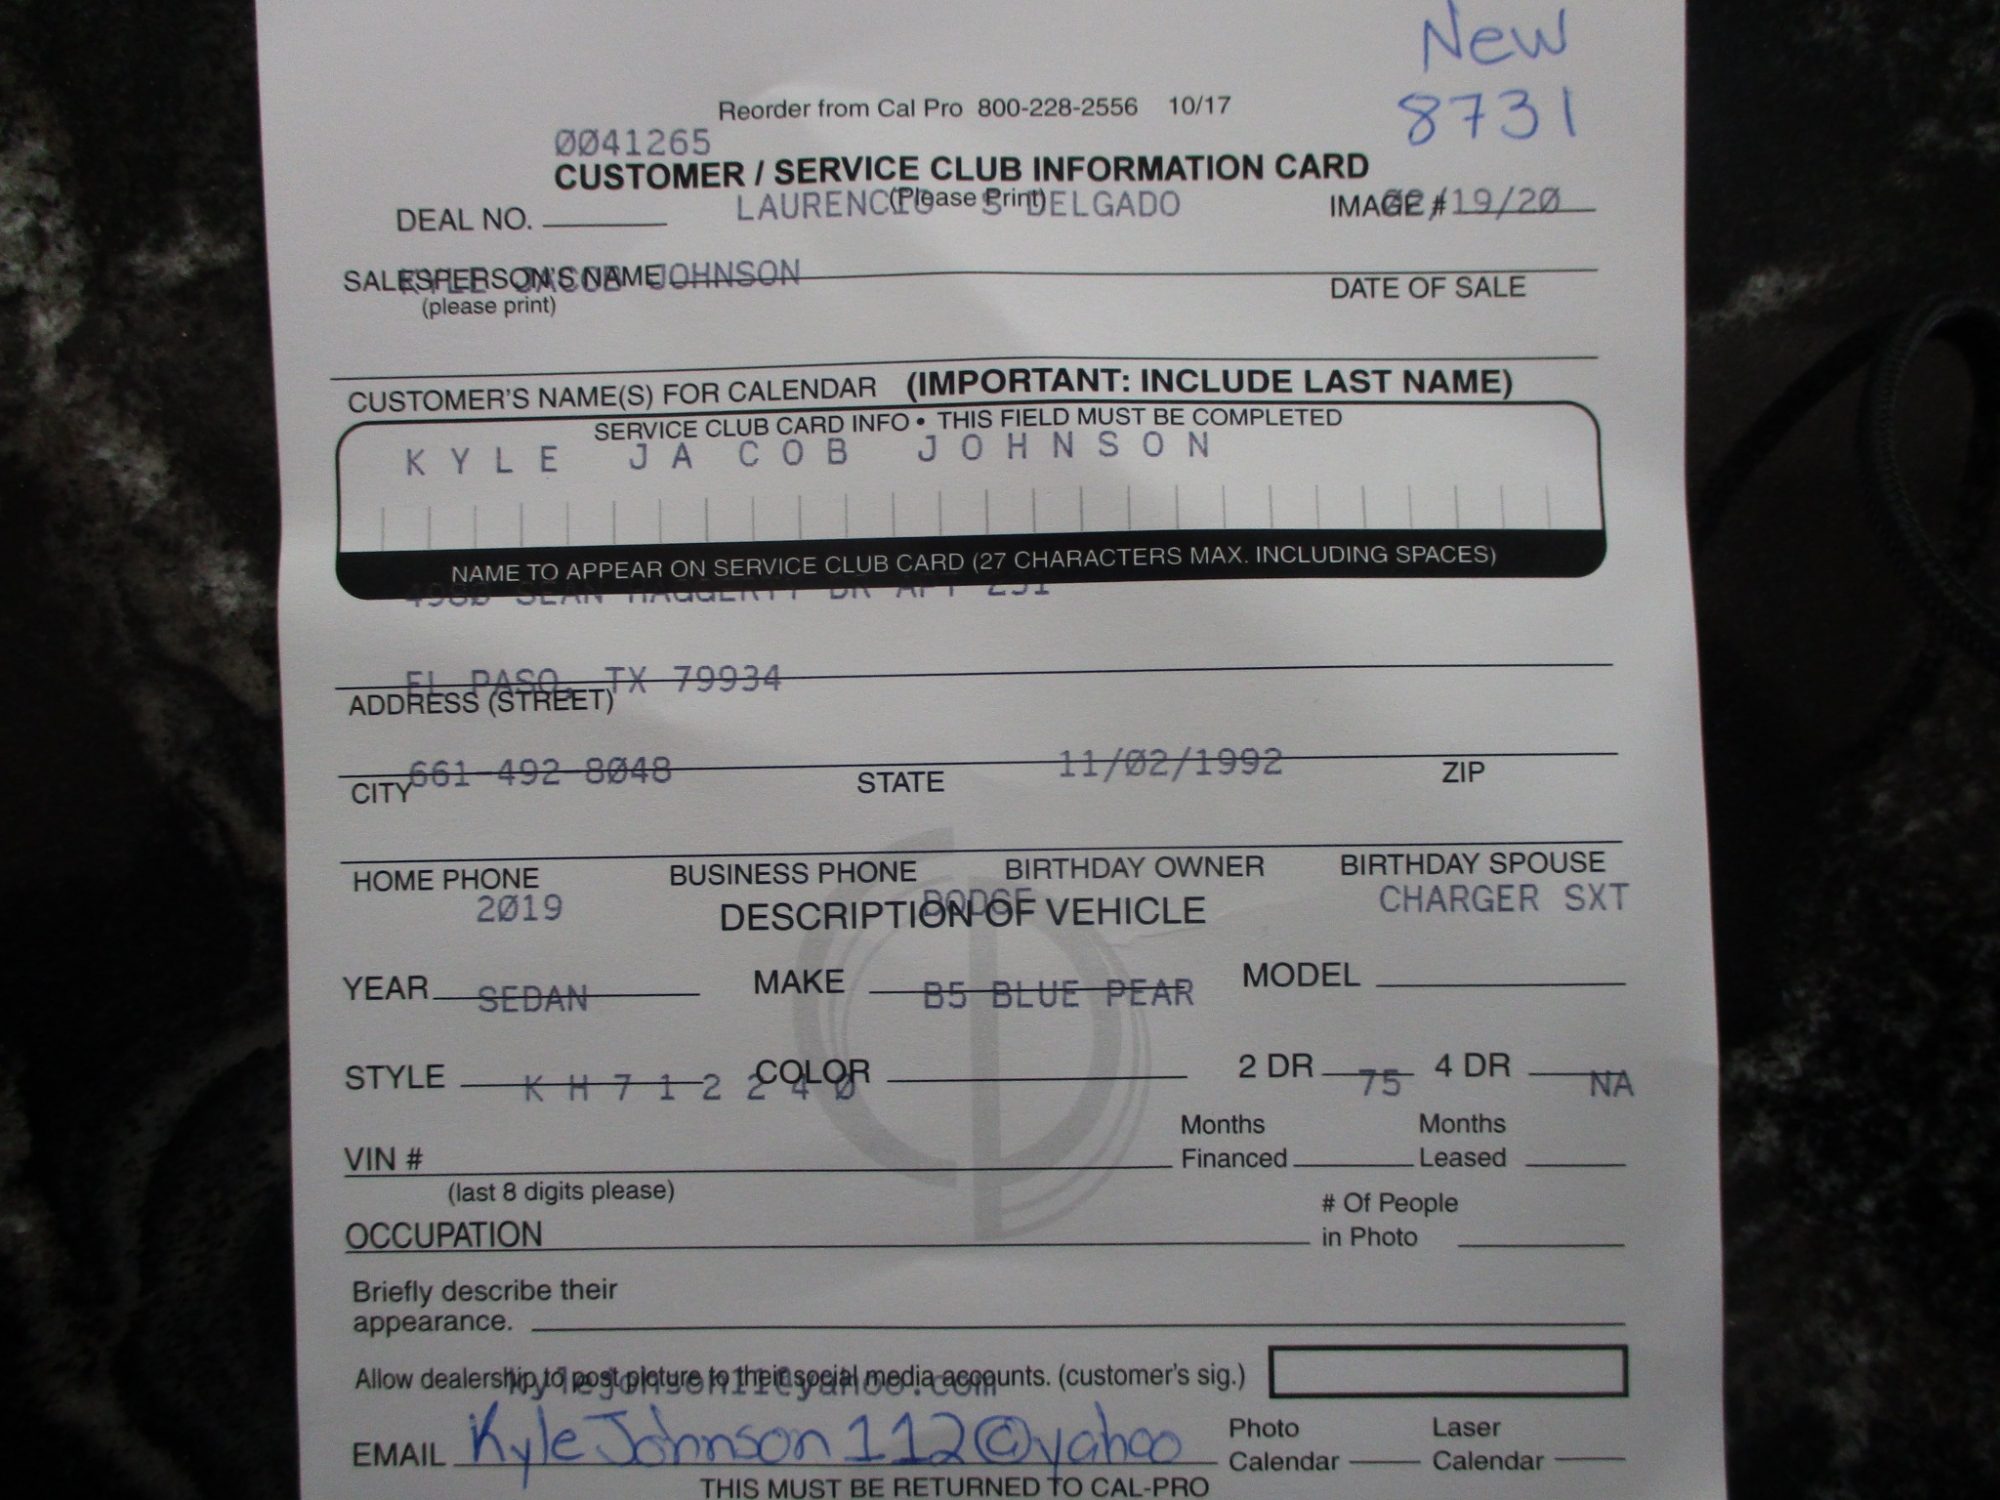 New
8731
Reorder from Cal Pro 800-228-2556 10/17
0041265
CUSTOMER / SERVICE CLUB INFORMATION CARD
(Please Print)
DEAL NO. LAURENCIO S DELGADO IMAGE # 02/19/20
SALESPERSON'S NAME KYLE JACOB JOHNSON DATE OF SALE
(please print)
CUSTOMER'S NAME(S) FOR CALENDAR (IMPORTANT: INCLUDE LAST NAME)
SERVICE CLUB CARD INFO • THIS FIELD MUST BE COMPLETED
KYLE JACOB JOHNSON
NAME TO APPEAR ON SERVICE CLUB CARD (27 CHARACTERS MAX. INCLUDING SPACES)
4980 SEAN HAGGERTY DR APT 231
EL PASO, TX 79934
ADDRESS (STREET)
661-492-8048 11/02/1992
CITY STATE ZIP
HOME PHONE BUSINESS PHONE BIRTHDAY OWNER BIRTHDAY SPOUSE
2019 DODGE CHARGER SXT
DESCRIPTION OF VEHICLE
YEAR MAKE MODEL
SEDAN B5 BLUE PEAR
STYLE COLOR 2 DR 4 DR
KH712240 75 NA
VIN # Months Financed Months Leased
(last 8 digits please)
OCCUPATION # Of People in Photo
Briefly describe their
appearance.
Allow dealership to post picture to their social media accounts. (customer's sig.)
EMAIL KyleJohnson112@yahoo Photo Calendar Laser Calendar
THIS MUST BE RETURNED TO CAL-PRO